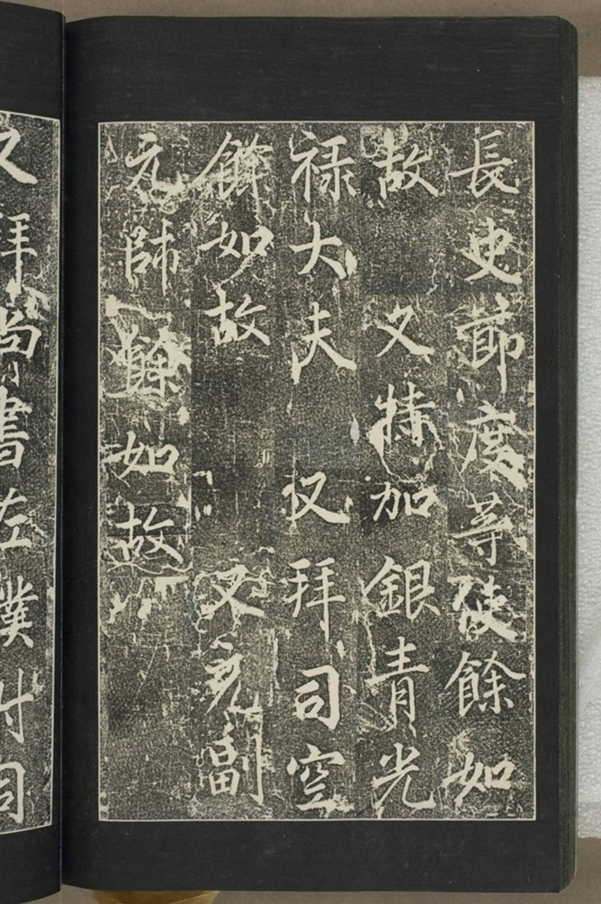 長史節度等使餘如
故 又特加銀青光
禄大夫 又拜司空
餘如故 又充副
元帥餘如故
又拜尚書左僕射同